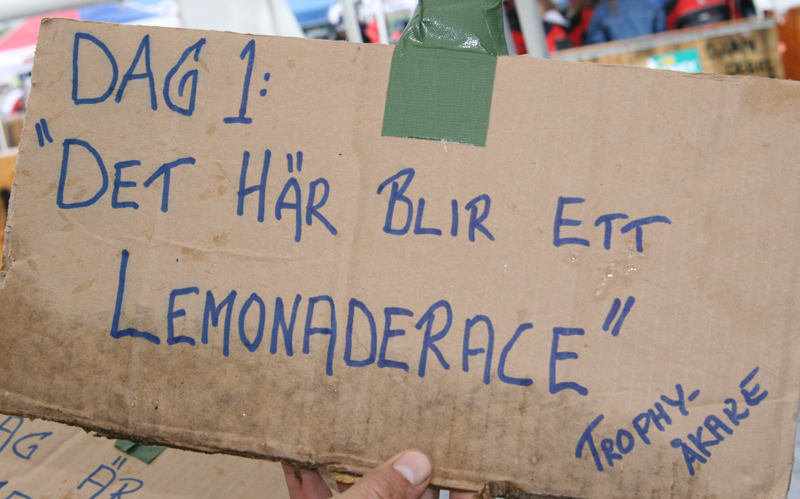 DAG 1:
"DET HÄR BLIR ETT
LEMONADERACE"
TROPHY-
ÅKARE
AG
ÄR